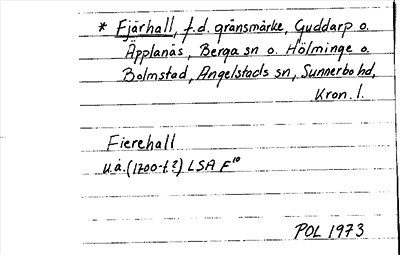 * Fjärhall, f.d. gränsmärke, Guddarp o.
Äpplanäs, Berga sn o. Hölminge o.
Bolmstad, Angelstads sn, Sunnerbo hd,
Kron. l.
Fierehall
u.å. (1700-t.?) LSA F¹⁰
POL 1973